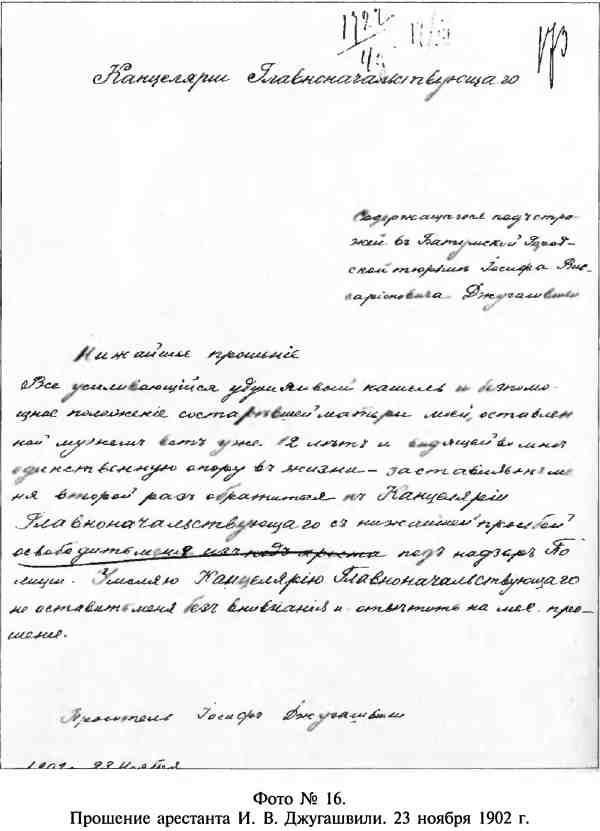 173
Канцелярии Главноначальствующаго
Содержащагося подъ стра-
жей въ Батумской Город-
ской тюрьмѣ Іосифа Вис-
саріоновича Джугашвили
Нижайшее прошеніе
Все усиливающійся удушливый кашель и безпомо-
щное положеніе состарѣвшейся матери моей, оставлен
ной мужемъ вотъ уже 12 лѣтъ и видящей во мнѣ
единственную опору въ жизни – заставляетъ ме
ня второй разъ обратиться къ Канцеляріи
Главноначальствующаго съ нижайшей просьбой
освободить меня изъ подъ ареста подъ надзоръ По
лиціи. Умоляю Канцелярію Главноначальствующаго
не оставить меня безъ вниманія и отвѣтить на мое про-
шеніе.
Проситель Іосифъ Джугашвили
1902 г. 23 Ноября
Фото № 16.
Прошение арестанта И. В. Джугашвили. 23 ноября 1902 г.